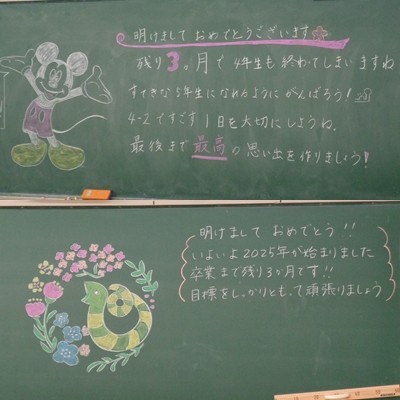 明けまして おめでとうございます
残り3ヶ月で4年生も終わってしまいますね
すてきな5年生になれるようにがんばろう！
4-2ですごす1日を大切にしようね。
最後まで最高の思い出を作りましょう！
明けまして おめでとう！！
いよいよ2025年が始まりました
卒業まで残り3か月です！！
目標をしっかりともって頑張りましょう